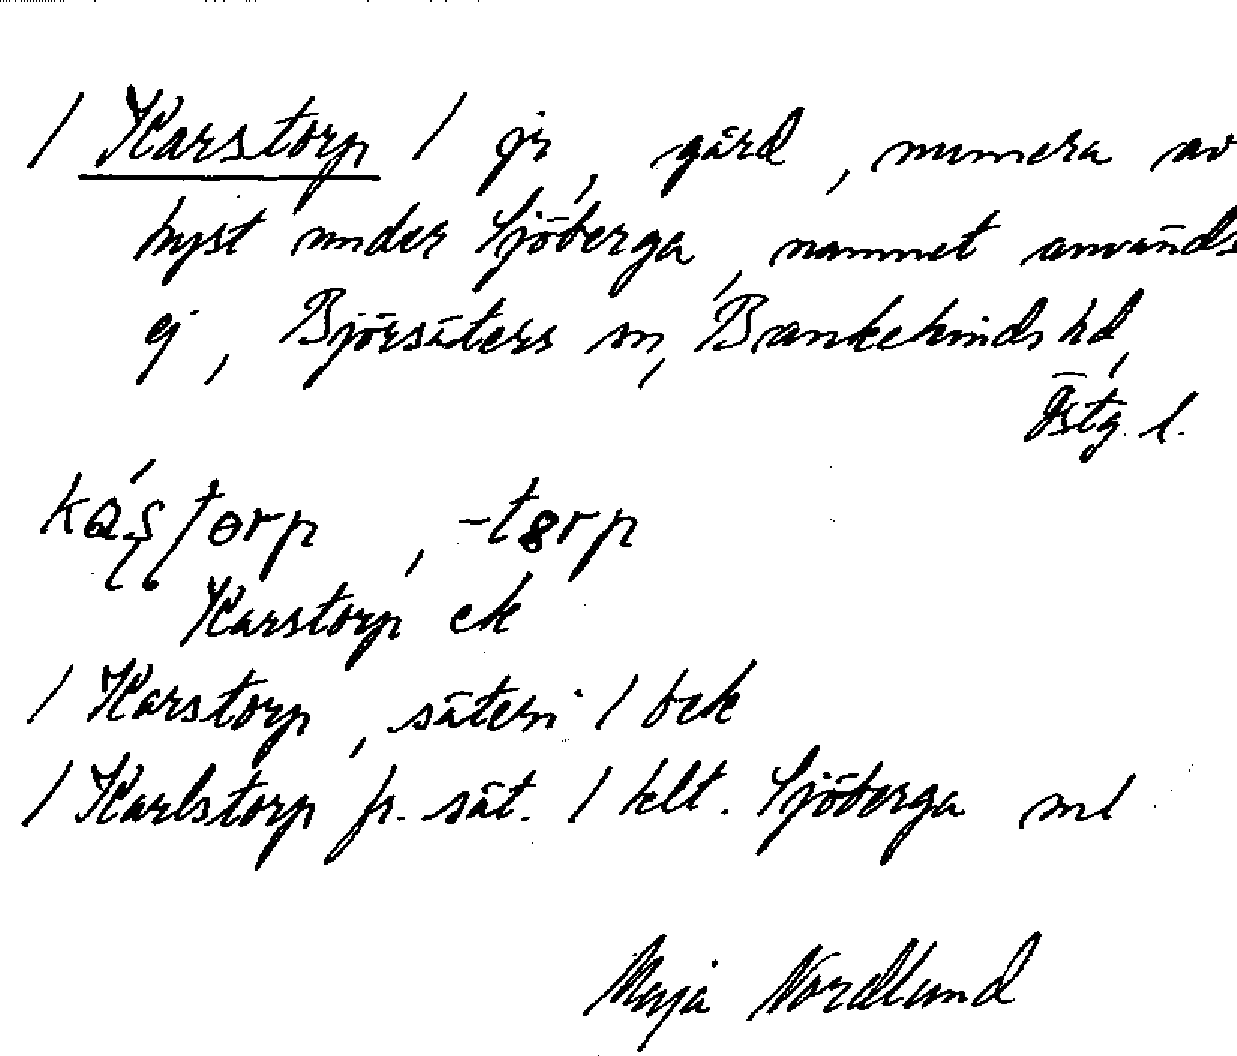 / Karstorp / gd, gård, numera av
hyst under Sjöberga, namnet används
ej, Björsäters sn, Bankekinds hd,
Östg. l.
-torp
Karstorp ek
/ Karstorp, säteri / bek
/ Karlstorp fr. sät. / klt. Sjöberga ml
Maja Nordlund